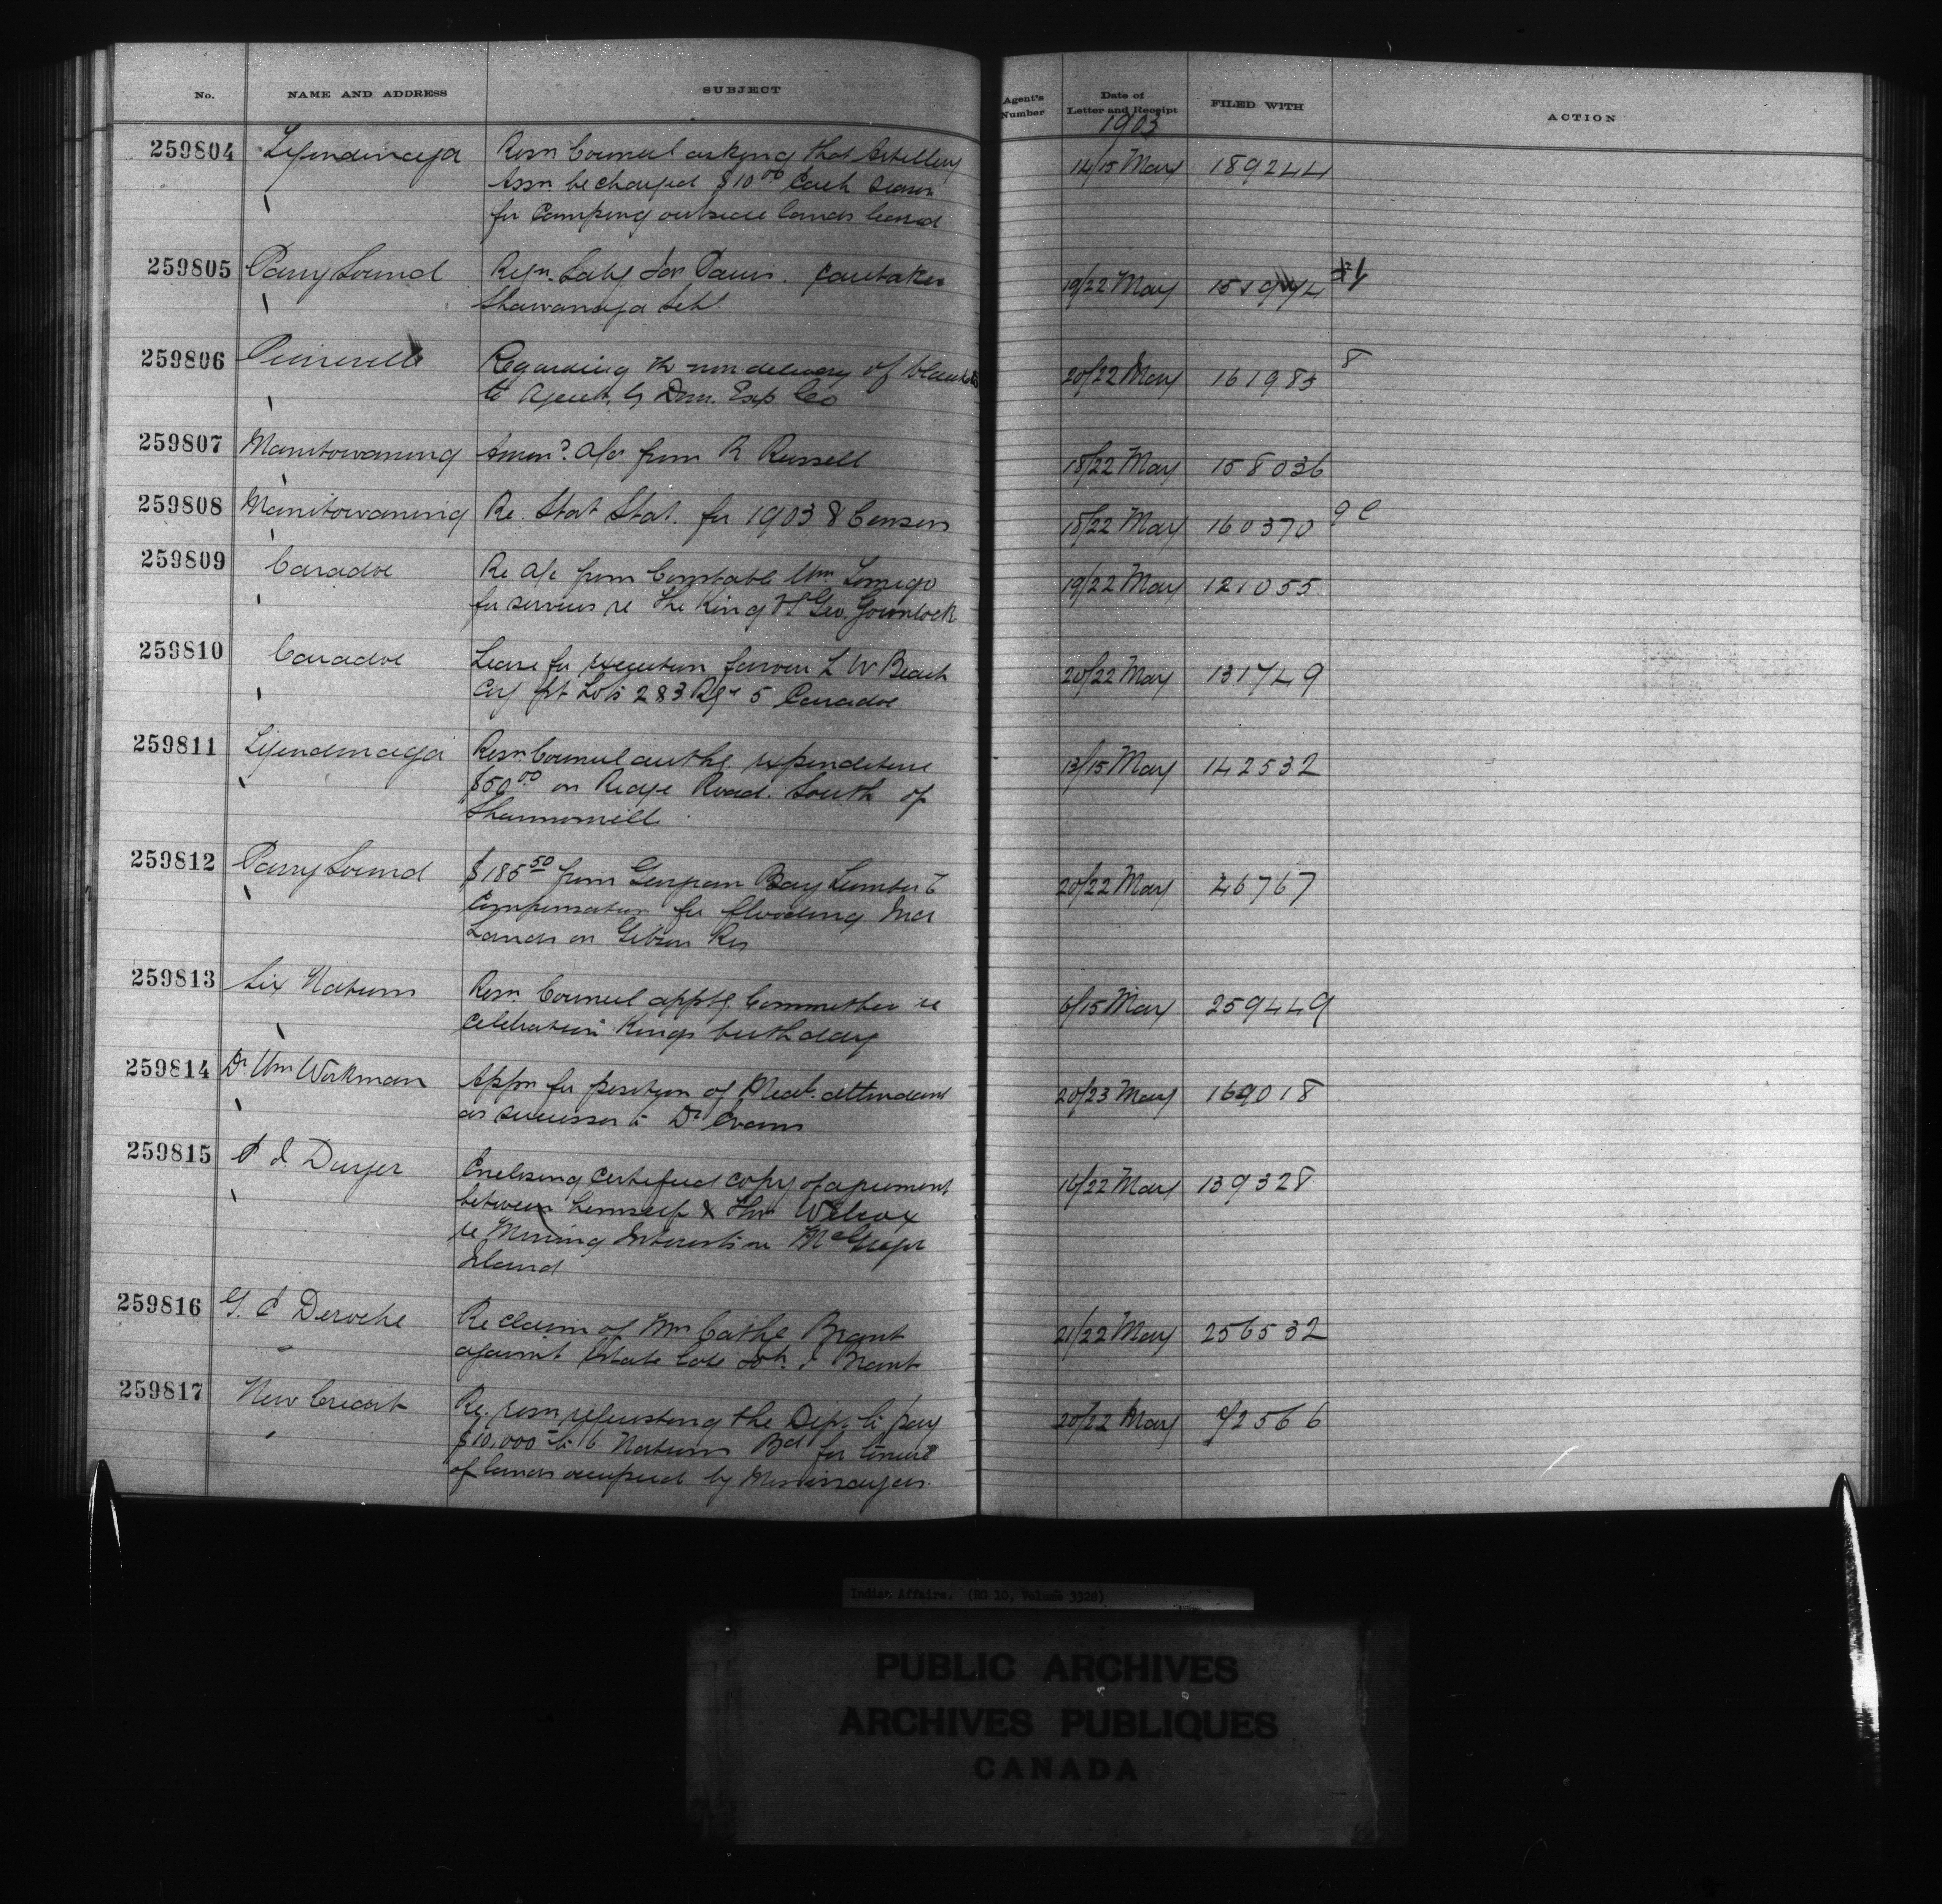 No. NAME AND ADDRESS SUBJECT Agent's Number Date of Letter and Receipt FILED WITH ACTION
1903
259804 Tyendinaga Resn Council asking that Artillery 14/15 May 189244
Assn be charged $10 00 each season
for Camping outside lands leased
259805 Parry Sound Caretaker 19/22 May
Shawanaga Schl
259806 Pierreville Regarding the non delivery of blankets 20/22 May 161985 8
to Agent by Dom. Exp Co
259807 Manitowaning a/c from R Russell 18/22 May 158036
259808 Manitowaning Re. Stat. for 1903 & Census 18/22 May 160370
259809 Caradoc Re a/c from Constable Wm 19/22 May 121055
for services re The King vs Geo.
259810 Caradoc Lease for execution favour L W Beach 20/22 May 131749
pt Lots 2 & 3 Rge 5 Caradoc
259811 Tyendinaga Resn Council authg expenditure 13/15 May 142532
$50 00 on Ridge Road South of
Shannonville
259812 Parry Sound $185 50 from Georgian Bay Lumber Co 20/22 May 46767
Compensation for flooding
Lands on Gibson Res
259813 Six Nations Resn Council apptg Committee re 6/15 May 259449
Celebration Kings birthday
259814 Dr Wm Workman Appn for position of Med. attendant 20/23 May 169018
as successor to Dr Evans
259815 Enclosing Certified copy of agreement 16/22 May 139328
between himself & Thos Wilcox
re Mining Interest in McGregor
Island
259816 G. E Deroche Re claim of Mrs Cathe Brant 21/22 May 256532
against Estate late Brant
259817 New Credit Re. resn requesting the Dep. to pay 20/22 May 72566
$10,000 to 6 Nations Bd for
of lands occupied by Mississaugas.
Indian Affairs. (RG 10, Volume 3328)
PUBLIC ARCHIVES
ARCHIVES PUBLIQUES
CANADA